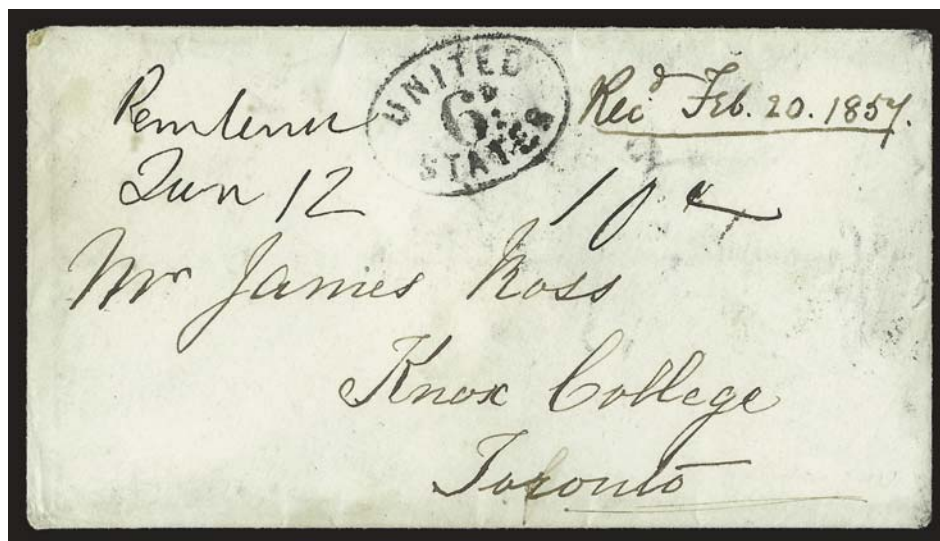 Pembina
Jan 12
UNITED
6D
STATES
Recd Feb. 20. 1857.
10
Mr James Ross
Knox College
Toronto